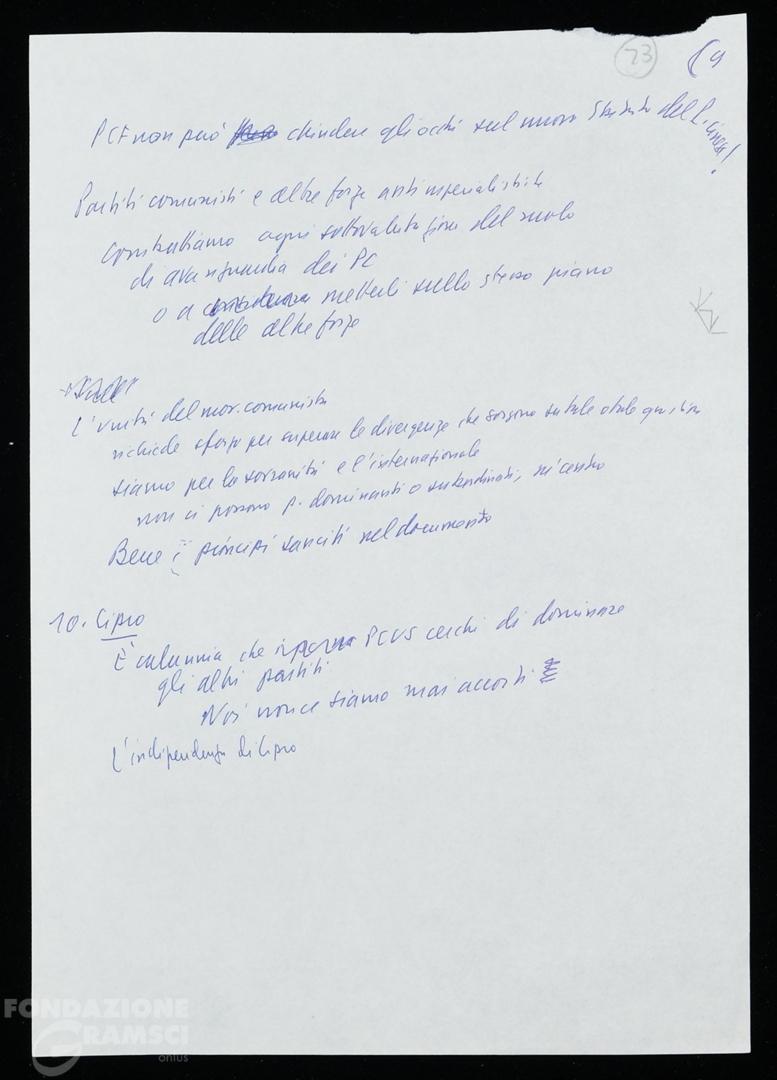 73
PCF non può chiudere gli occhi sul nuovo Statuto del P. cinese!
Partiti comunisti e altre forze antimperialistiche
combattiamo ogni sottovalutazione del ruolo
di avanguardia dei PC
o a metterli sullo stesso piano
delle altre forze
L'unità del mov. comunista
richiede sforzo per superare le divergenze che sorgono su tale o tale questione
siamo per la sovranità e l'internazionale
non ci possono p. dominanti o subordinati, né centro
Bene i principi sanciti nel documento
10. Cipro
È calunnia che PCUS cerchi di dominare
gli altri partiti
Noi non ce siamo mai accorti
L'indipendenza di Cipro
FONDAZIONE
GRAMSCI
onlus